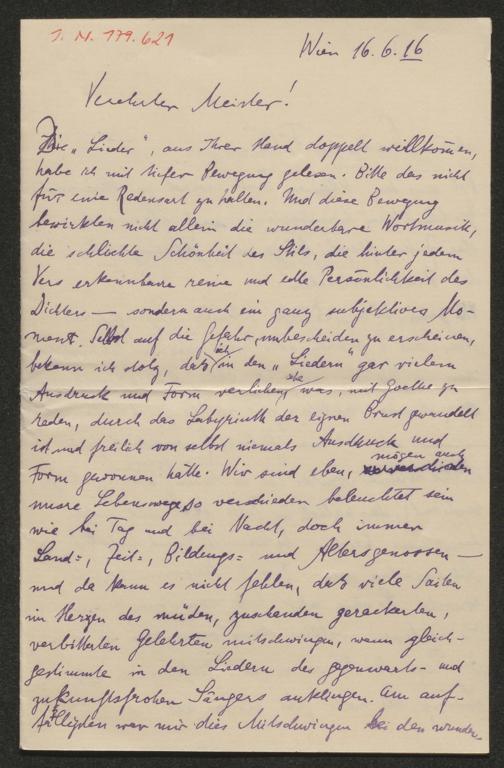 I. N. 179.621
Wien 16.6.16
Verehrter Meister!
Ihre „Lieder", aus Ihrer Hand doppelt willkommen,
habe ich mit tiefer Bewegung gelesen. Bitte das nicht
für eine Redensart zu halten. Und diese Bewegung
bewirkten nicht allein die wunderbare Wortmusik,
die schlichte Schönheit des Stils, die hinter jedem
Vers erkennbare reine und edle Persönlichkeit des
Dichters — sondern auch ein ganz subjektives Mo-
ment. Selbst auf die Gefahr, unbescheiden zu erscheinen,
bekenn ich stolz, daß ich in den „Liedern" gar vielem
Ausdruck und Form verliehen sehe was, mit Goethe zu
reden, durch das Labyrinth der eignen Brust gewandelt
ist und freilich von selbst niemals Ausdruck und
Form gewonnen hätte. Wir sind eben, mögen auch
unsre Lebenswege so verschieden beleuchtet sein
wie bei Tag und bei Nacht, doch immer
Land=, Zeit=, Bildungs= und Altersgenossen —
und da kann es nicht fehlen, daß viele Saiten
im Herzen des müden, zuschanden gerackerten,
verbitterten Gelehrten mitschwingen, wenn gleich-
gestimmte in den Liedern des gegenwarts- und
zukunftsfrohen Sängers anklingen. Am auf-
fälligsten war mir dies Mitschwingen bei den